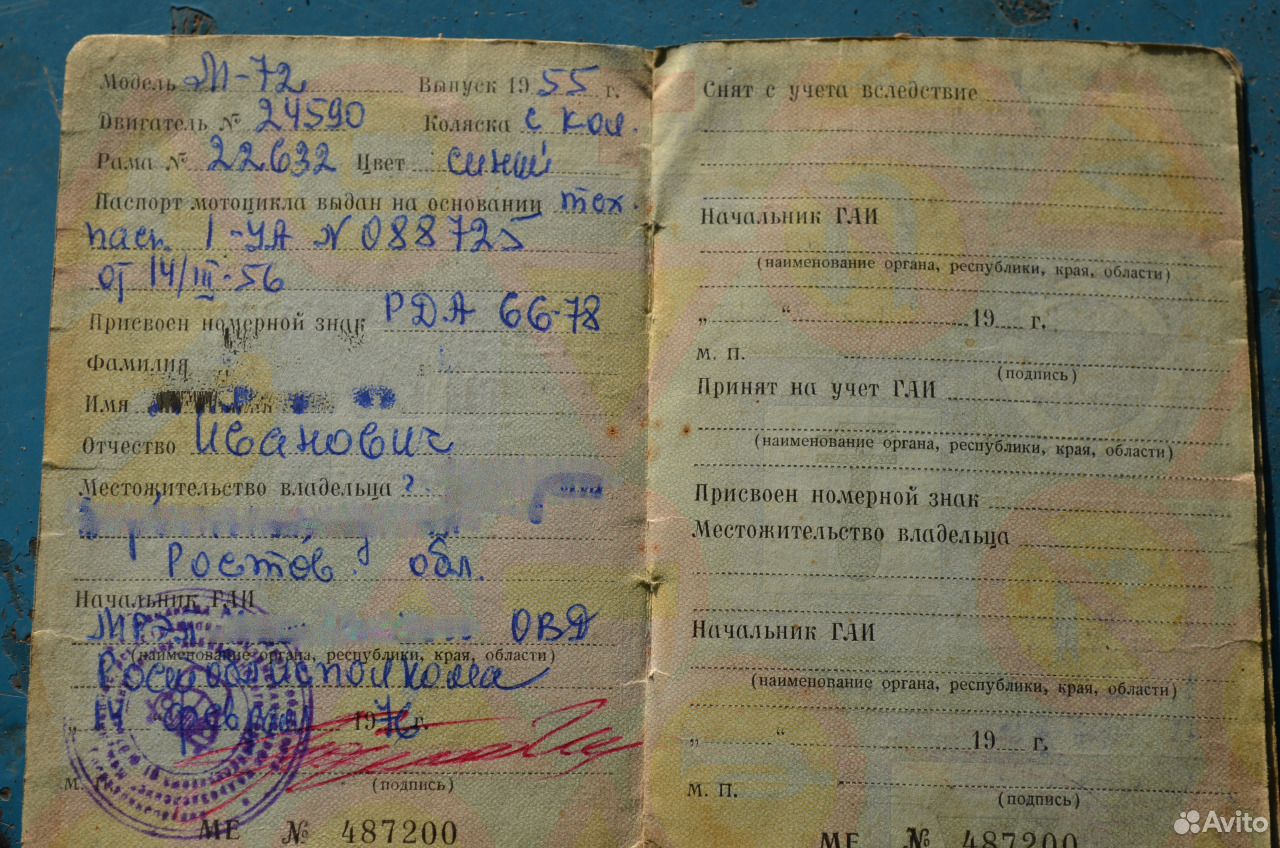 Модель М-72 Выпуск 1955 г.
Двигатель № 24590 Коляска с кол.
Рама № 22632 Цвет синий
Паспорт мотоцикла выдан на основании тех.
пасп. 1-УА N 088725
от 14/III-56
Присвоен номерной знак РДА 66-78
Фамилия
Имя
Отчество Иванович
Местожительство владельца
Ростов. обл.
Начальник ГАИ
МРЭО ОВД
(наименование органа, республики, края, области)
Ростоблисполкома
„14“ февраля 1976 г.
М. П. (подпись)
МЕ № 487200
Снят с учета вследствие
Начальник ГАИ
(наименование органа, республики, края, области)
„ “ 19 г.
М. П.
(подпись)
Принят на учет ГАИ
(наименование органа, республики, края, области)
Присвоен номерной знак
Местожительство владельца
Начальник ГАИ
(наименование органа, республики, края, области)
„ “ 19 г.
М. П.
(подпись)
МЕ № 487200
Avito